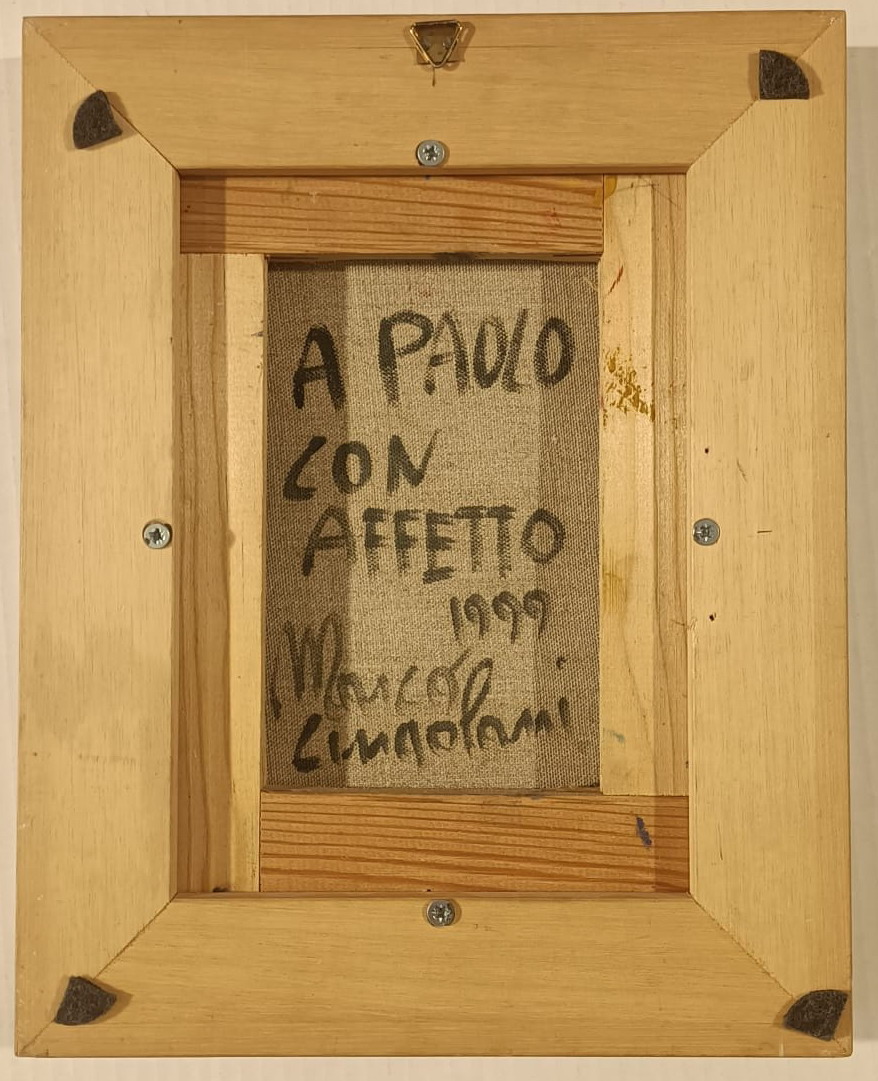 A PAOLO
CON
AFFETTO
1999
Marco
Cingolani